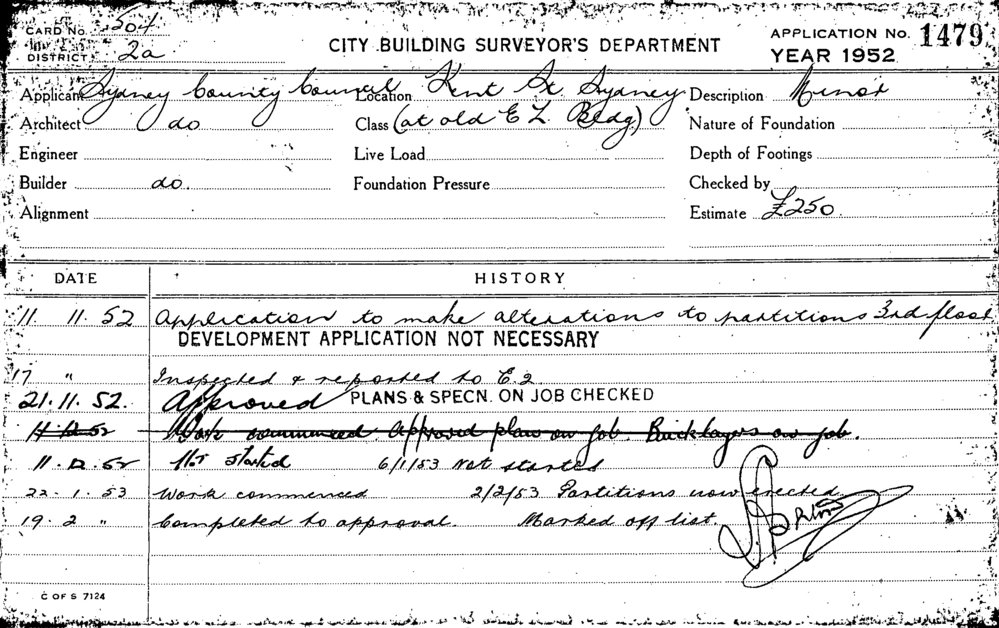 CARD No. 504
DISTRICT 2a
CITY BUILDING SURVEYOR'S DEPARTMENT
APPLICATION No. 1479
YEAR 1952
Applicant Sydney County Council Location Kent St Sydney Description Minor
Architect do Class (at old E L Bldg) Nature of Foundation
Engineer Live Load Depth of Footings
Builder do. Foundation Pressure Checked by
Alignment Estimate £250
DATE HISTORY
11 11. 52 Application to make alterations to partitions 3rd floor
DEVELOPMENT APPLICATION NOT NECESSARY
17 " Inspected & reported to E.2
21.11.52. Approved PLANS & SPECN. ON JOB CHECKED
11 12 52 Work commenced. Approved plan on job. Bricklayers on job.
11. 12. 52 Not started 6/1/53 Not started
22. 1. 53 Work commenced 2/2/53 Partitions now erected
19. 2 " Completed to approval. Marked off list.
C OF S 7124